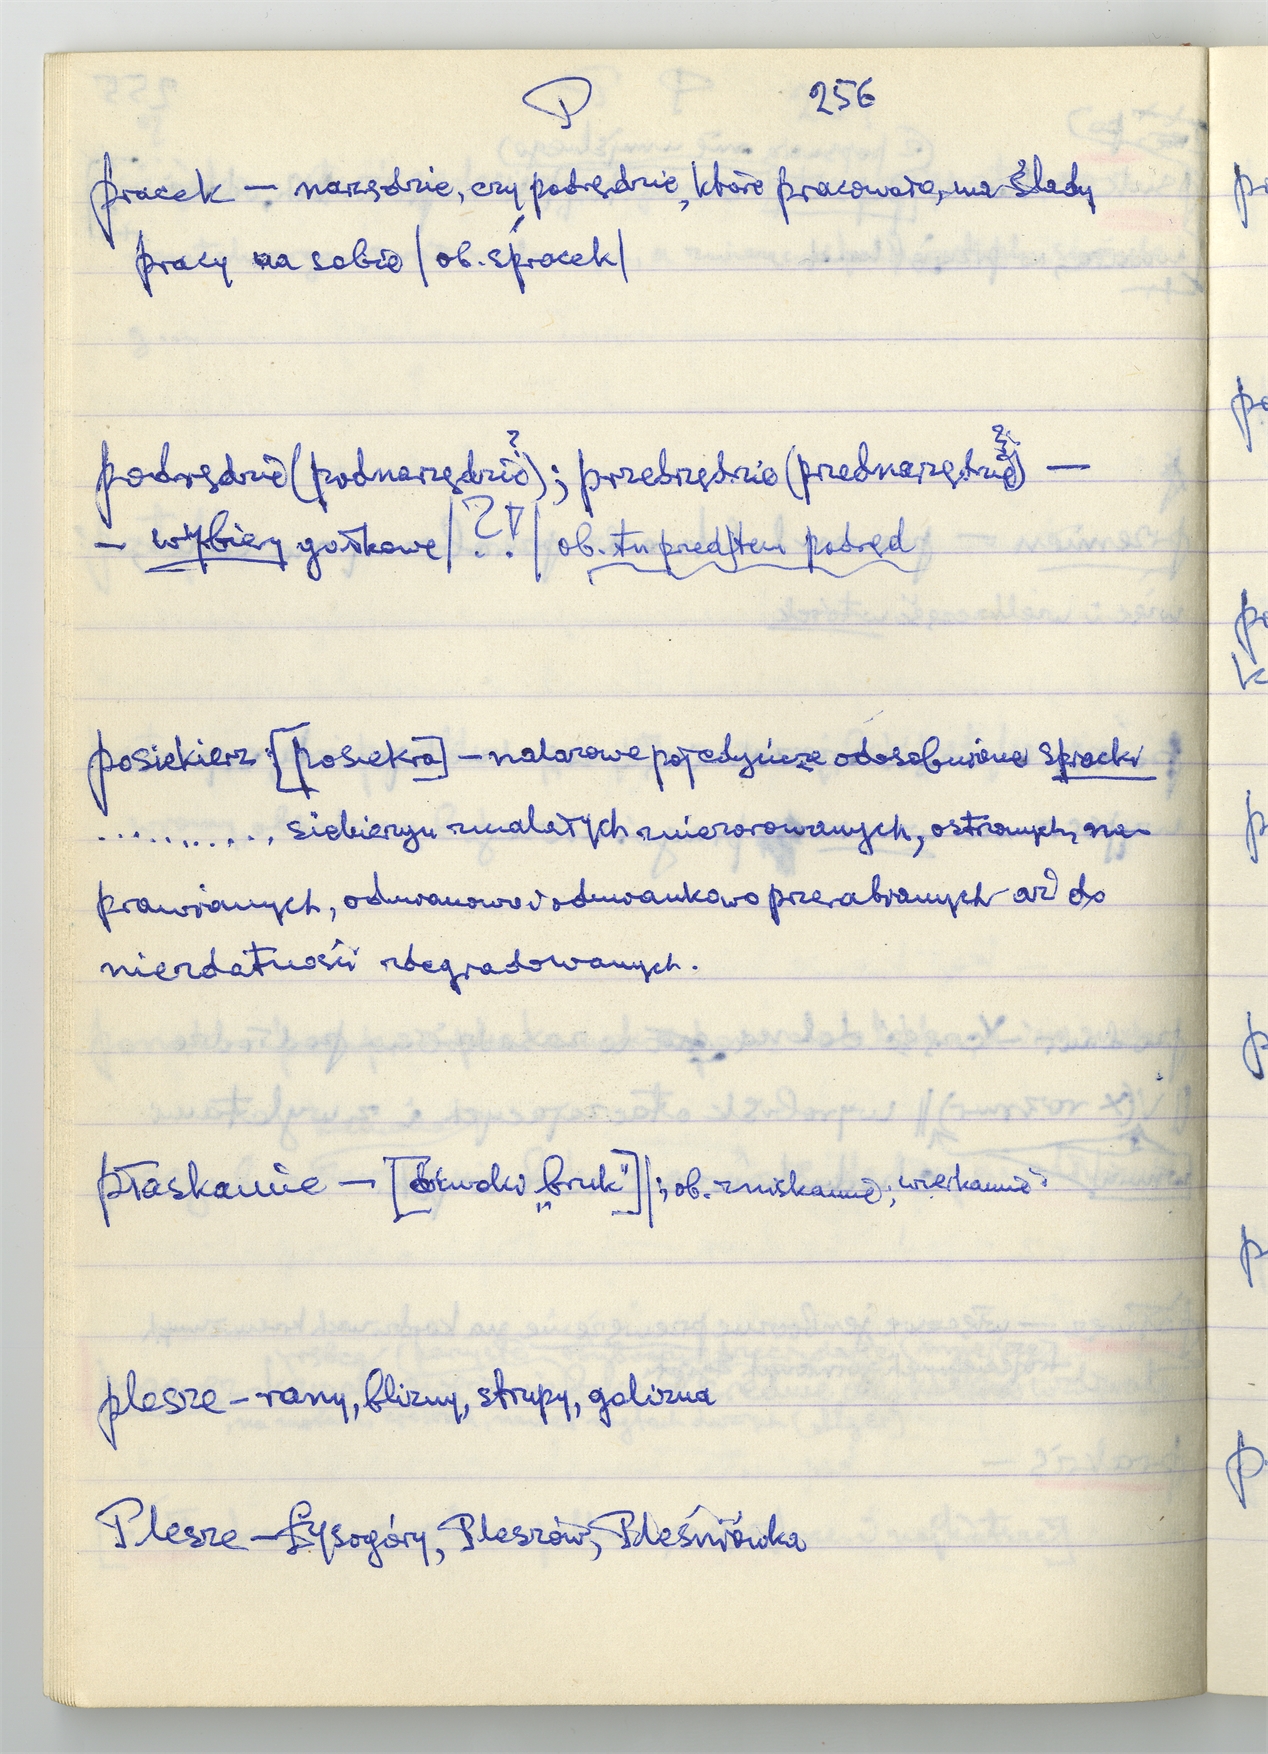 P 256
pracek — narzędzie, czy podrzędzie, które pracowało, ma ślady
pracy na sobie / ob. spracek /
podrzędzie (podnarzędzie?); przedrzędzie (przednarzędzie?) —
— wybiery gułkowe / ?! / ob. tu przed/tem podrzęd
posiekierz [posiekra] — nalazowe pojedyńcze odosobnione spracki
............ siekierzyn zmalałych zmizerowanych, ostrzonych, na-
prawianych, odmianowo i odmiankowo przerabianych aż do
niezdatności zdegradowanych.
płaskanie — [„bruk"] /; ob. zmiskanie; wierkanie
plesze — rany, blizny, strupy, golizna
Plesze — Łysogóry, Pleszów, Pleśniówka